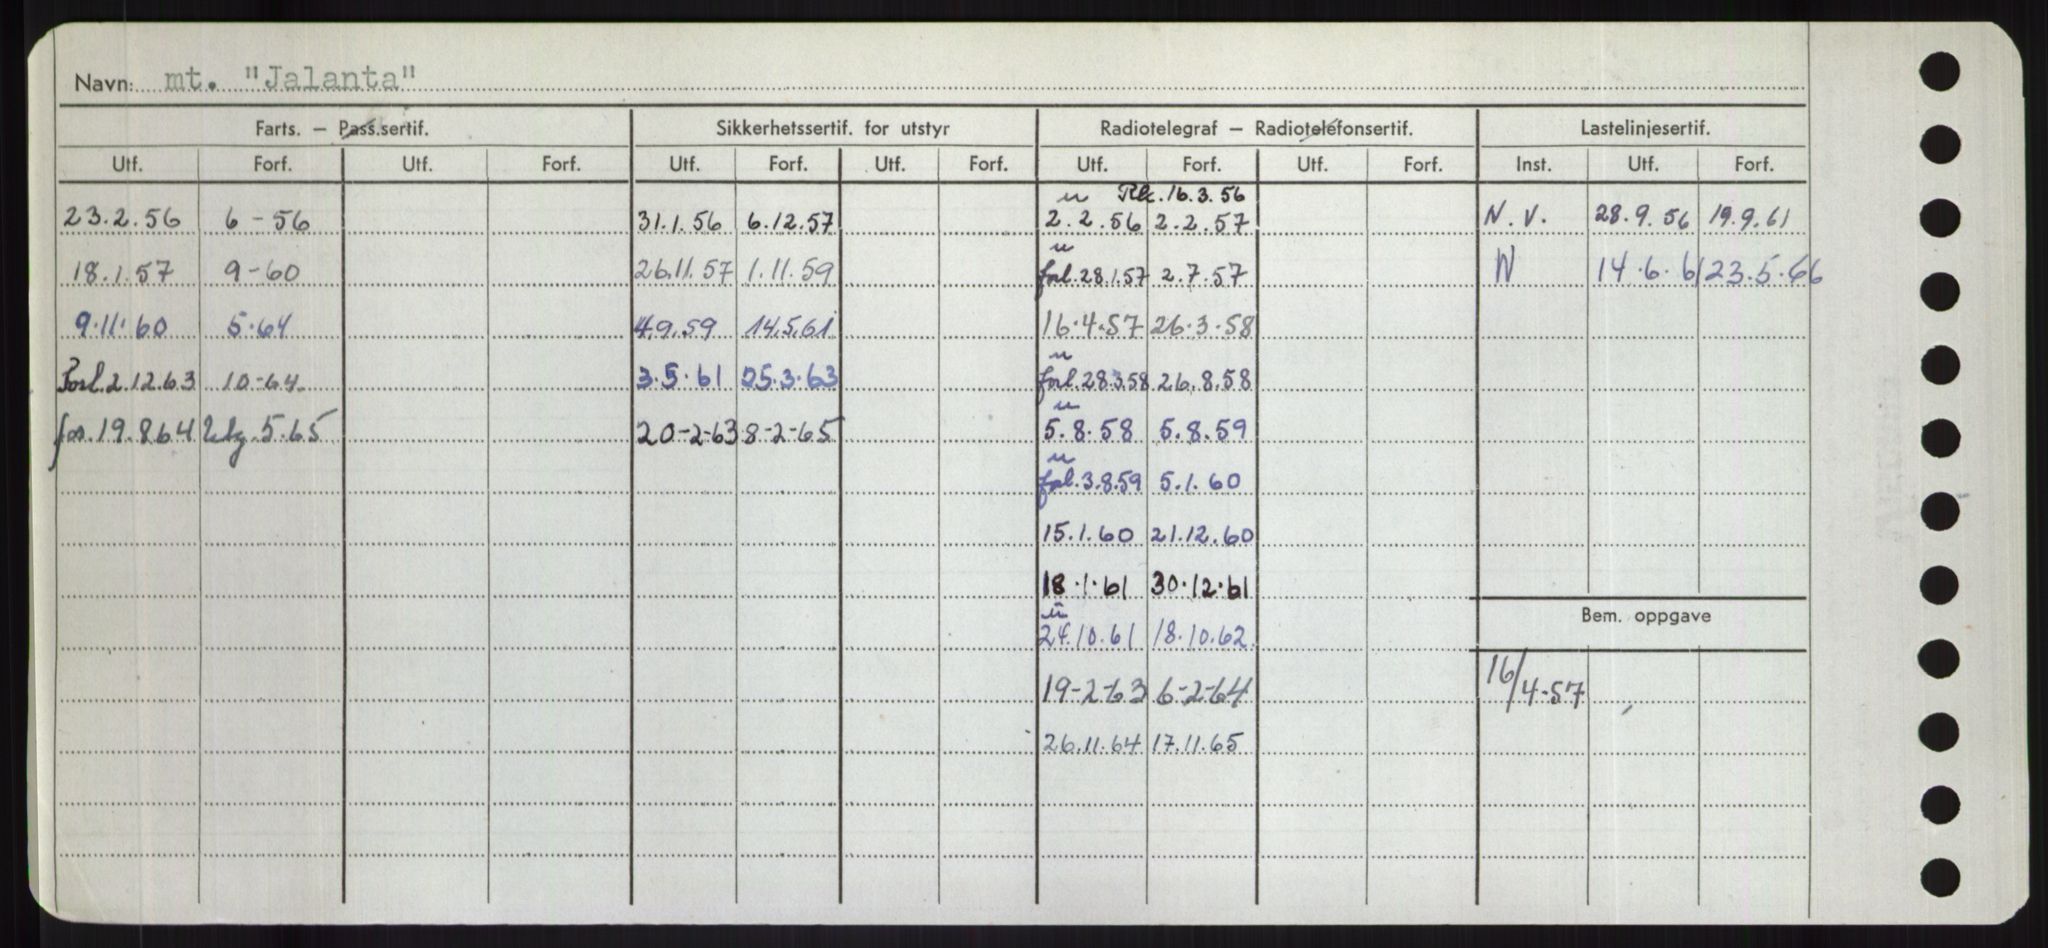 Navn: mt. "Jalanta"
Farts. – Pass.sertif. Sikkerhetssertif. for utstyr Radiotelegraf – Radiotelefonsertif. Lastelinjesertif.
Utf. Forf. Utf. Forf. Utf. Forf. Utf. Forf. Utf. Forf. Utf. Forf. Inst. Utf. Forf.
u 16.3.56
23.2.56 6-56 31.1.56 6.12.57 2.2.56 2.2.57 N.V. 28.9.56 19.9.61
u
18.1.57 9-60 26.11.57 1.11.59 forl.28.1.57 2.7.57 N 14.6.61 23.5.66
9.11.60 5.64 4.9.59 14.5.61 16.4.57 26.3.58
u
Forl.2.12.63 10-64 3.5.61 25.3.63 forl.28.3.58 26.8.58
u
for.19.8.64 5.65 20-2-63 8-2-65 5.8.58 5.8.59
u
forl.3.8.59 5.1.60
15.1.60 21.12.60
18.1.61 30.12.61
Bem. oppgave
u
24.10.61 18.10.62
19-2-63 6-2-64 16/4-57
26.11.64 17.11.65